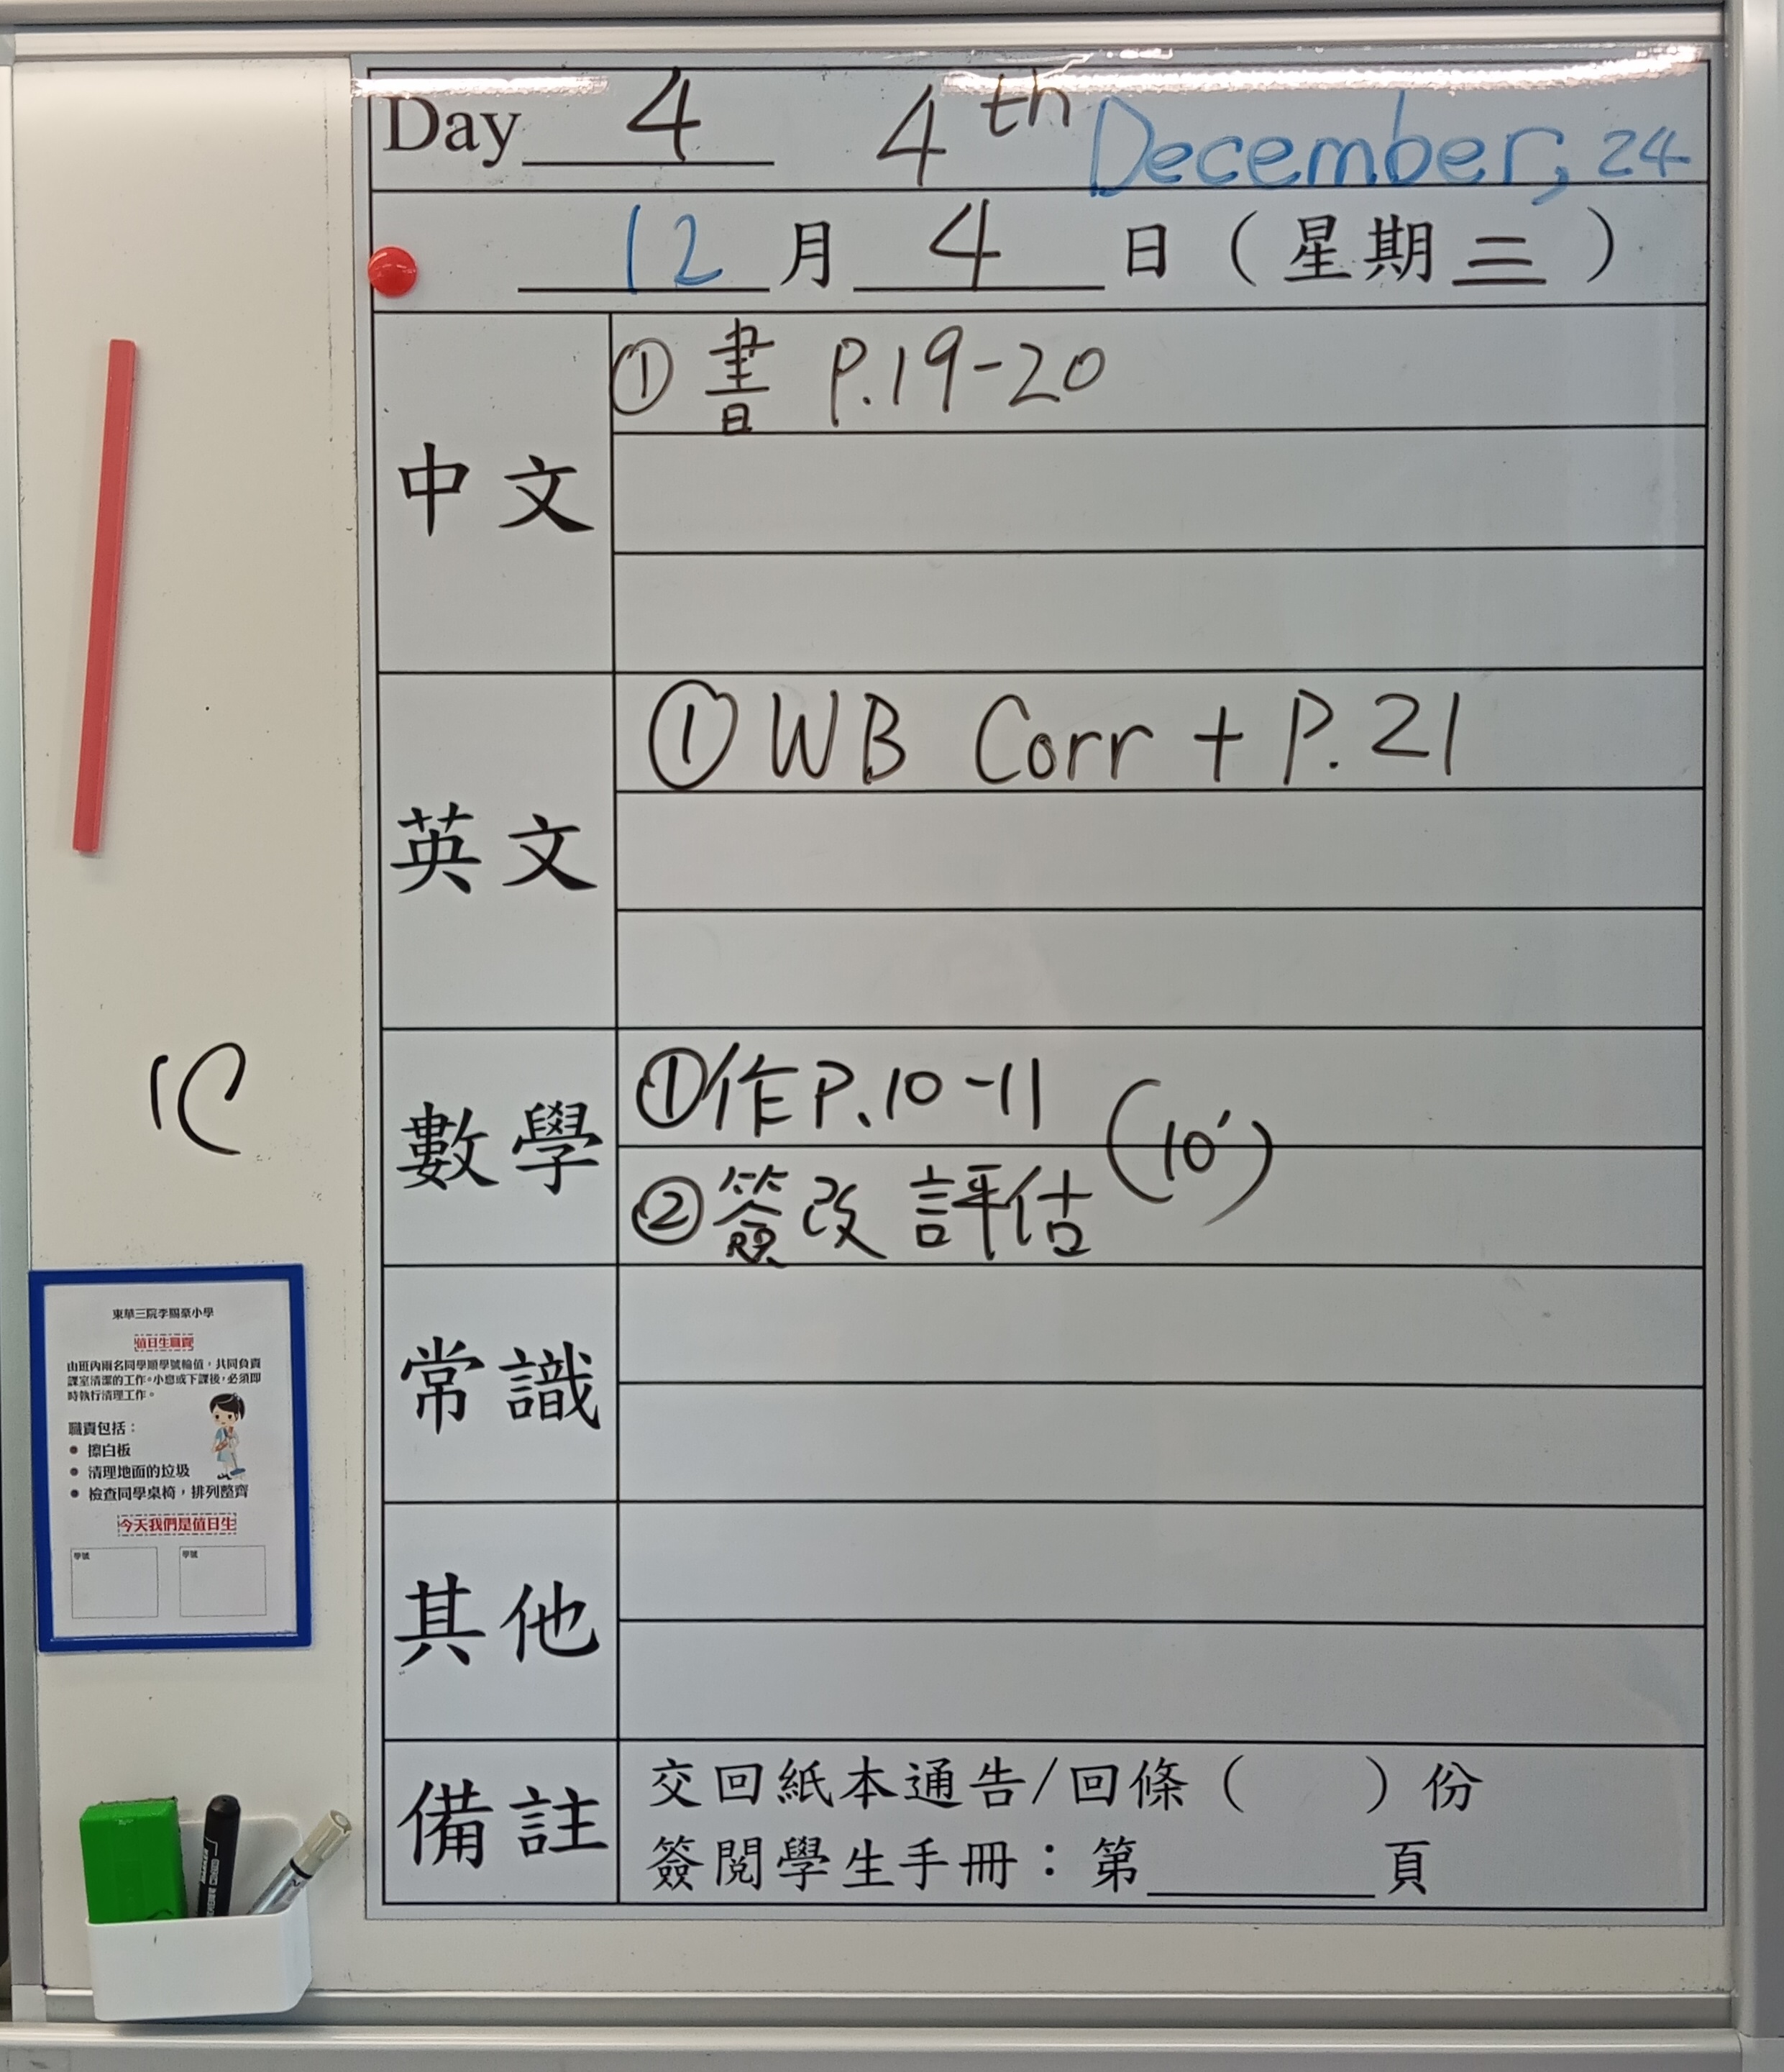 Day 4 4th December, 24
12 月 4 日 ( 星期 三 )
中文
① 書 P.19-20
英文
① WB Corr + P.21
數學
① 作 P.10-11
② 簽改 評估 (10')
常識
其他
備註
交回紙本通告/回條 ( ) 份
簽閱學生手冊:第 頁
1C
東華三院李賜豪小學
值日生職責
由班內兩名同學順學號輪值,共同負責
課室清潔的工作。小息或下課後,必須即
時執行清理工作。
職責包括:
• 擦白板
• 清理地面的垃圾
• 檢查同學桌椅,排列整齊
今天我們是值日生
學號 學號